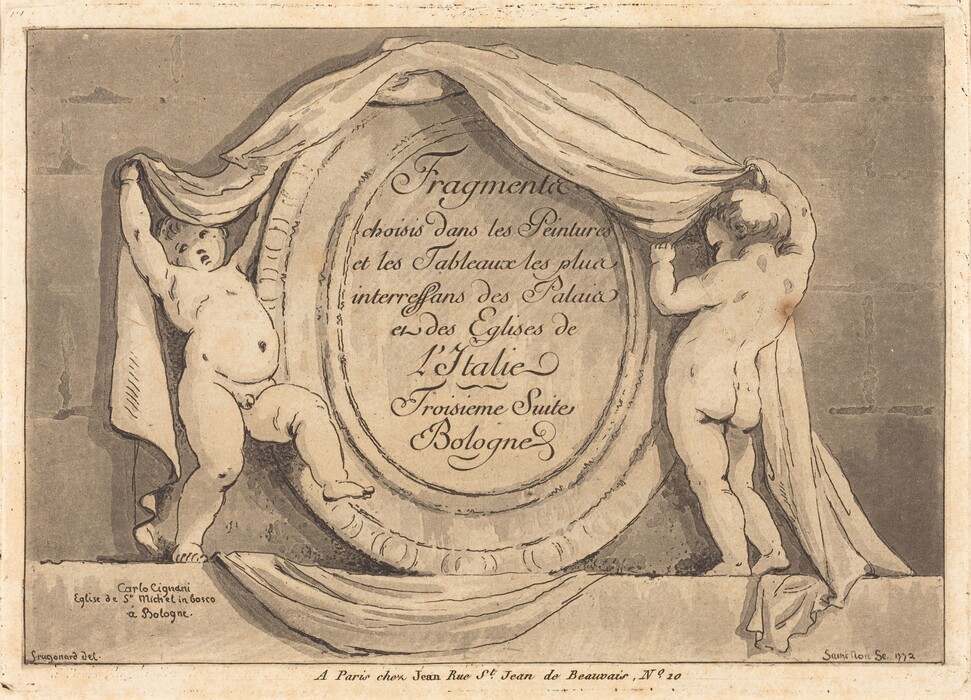 Fragments
choisis dans les Peintures
et les Tableaux les plus
interressans des Palais
et des Eglises de
l'Italie
Troisieme Suite
Bologne
Carlo Cignani
Eglise de St. Michel in bosco
à Bologne.
fragonard del.
Saint Non Sc. 1772
A Paris chez Jean Rue St. Jean de Beauvais, No. 10